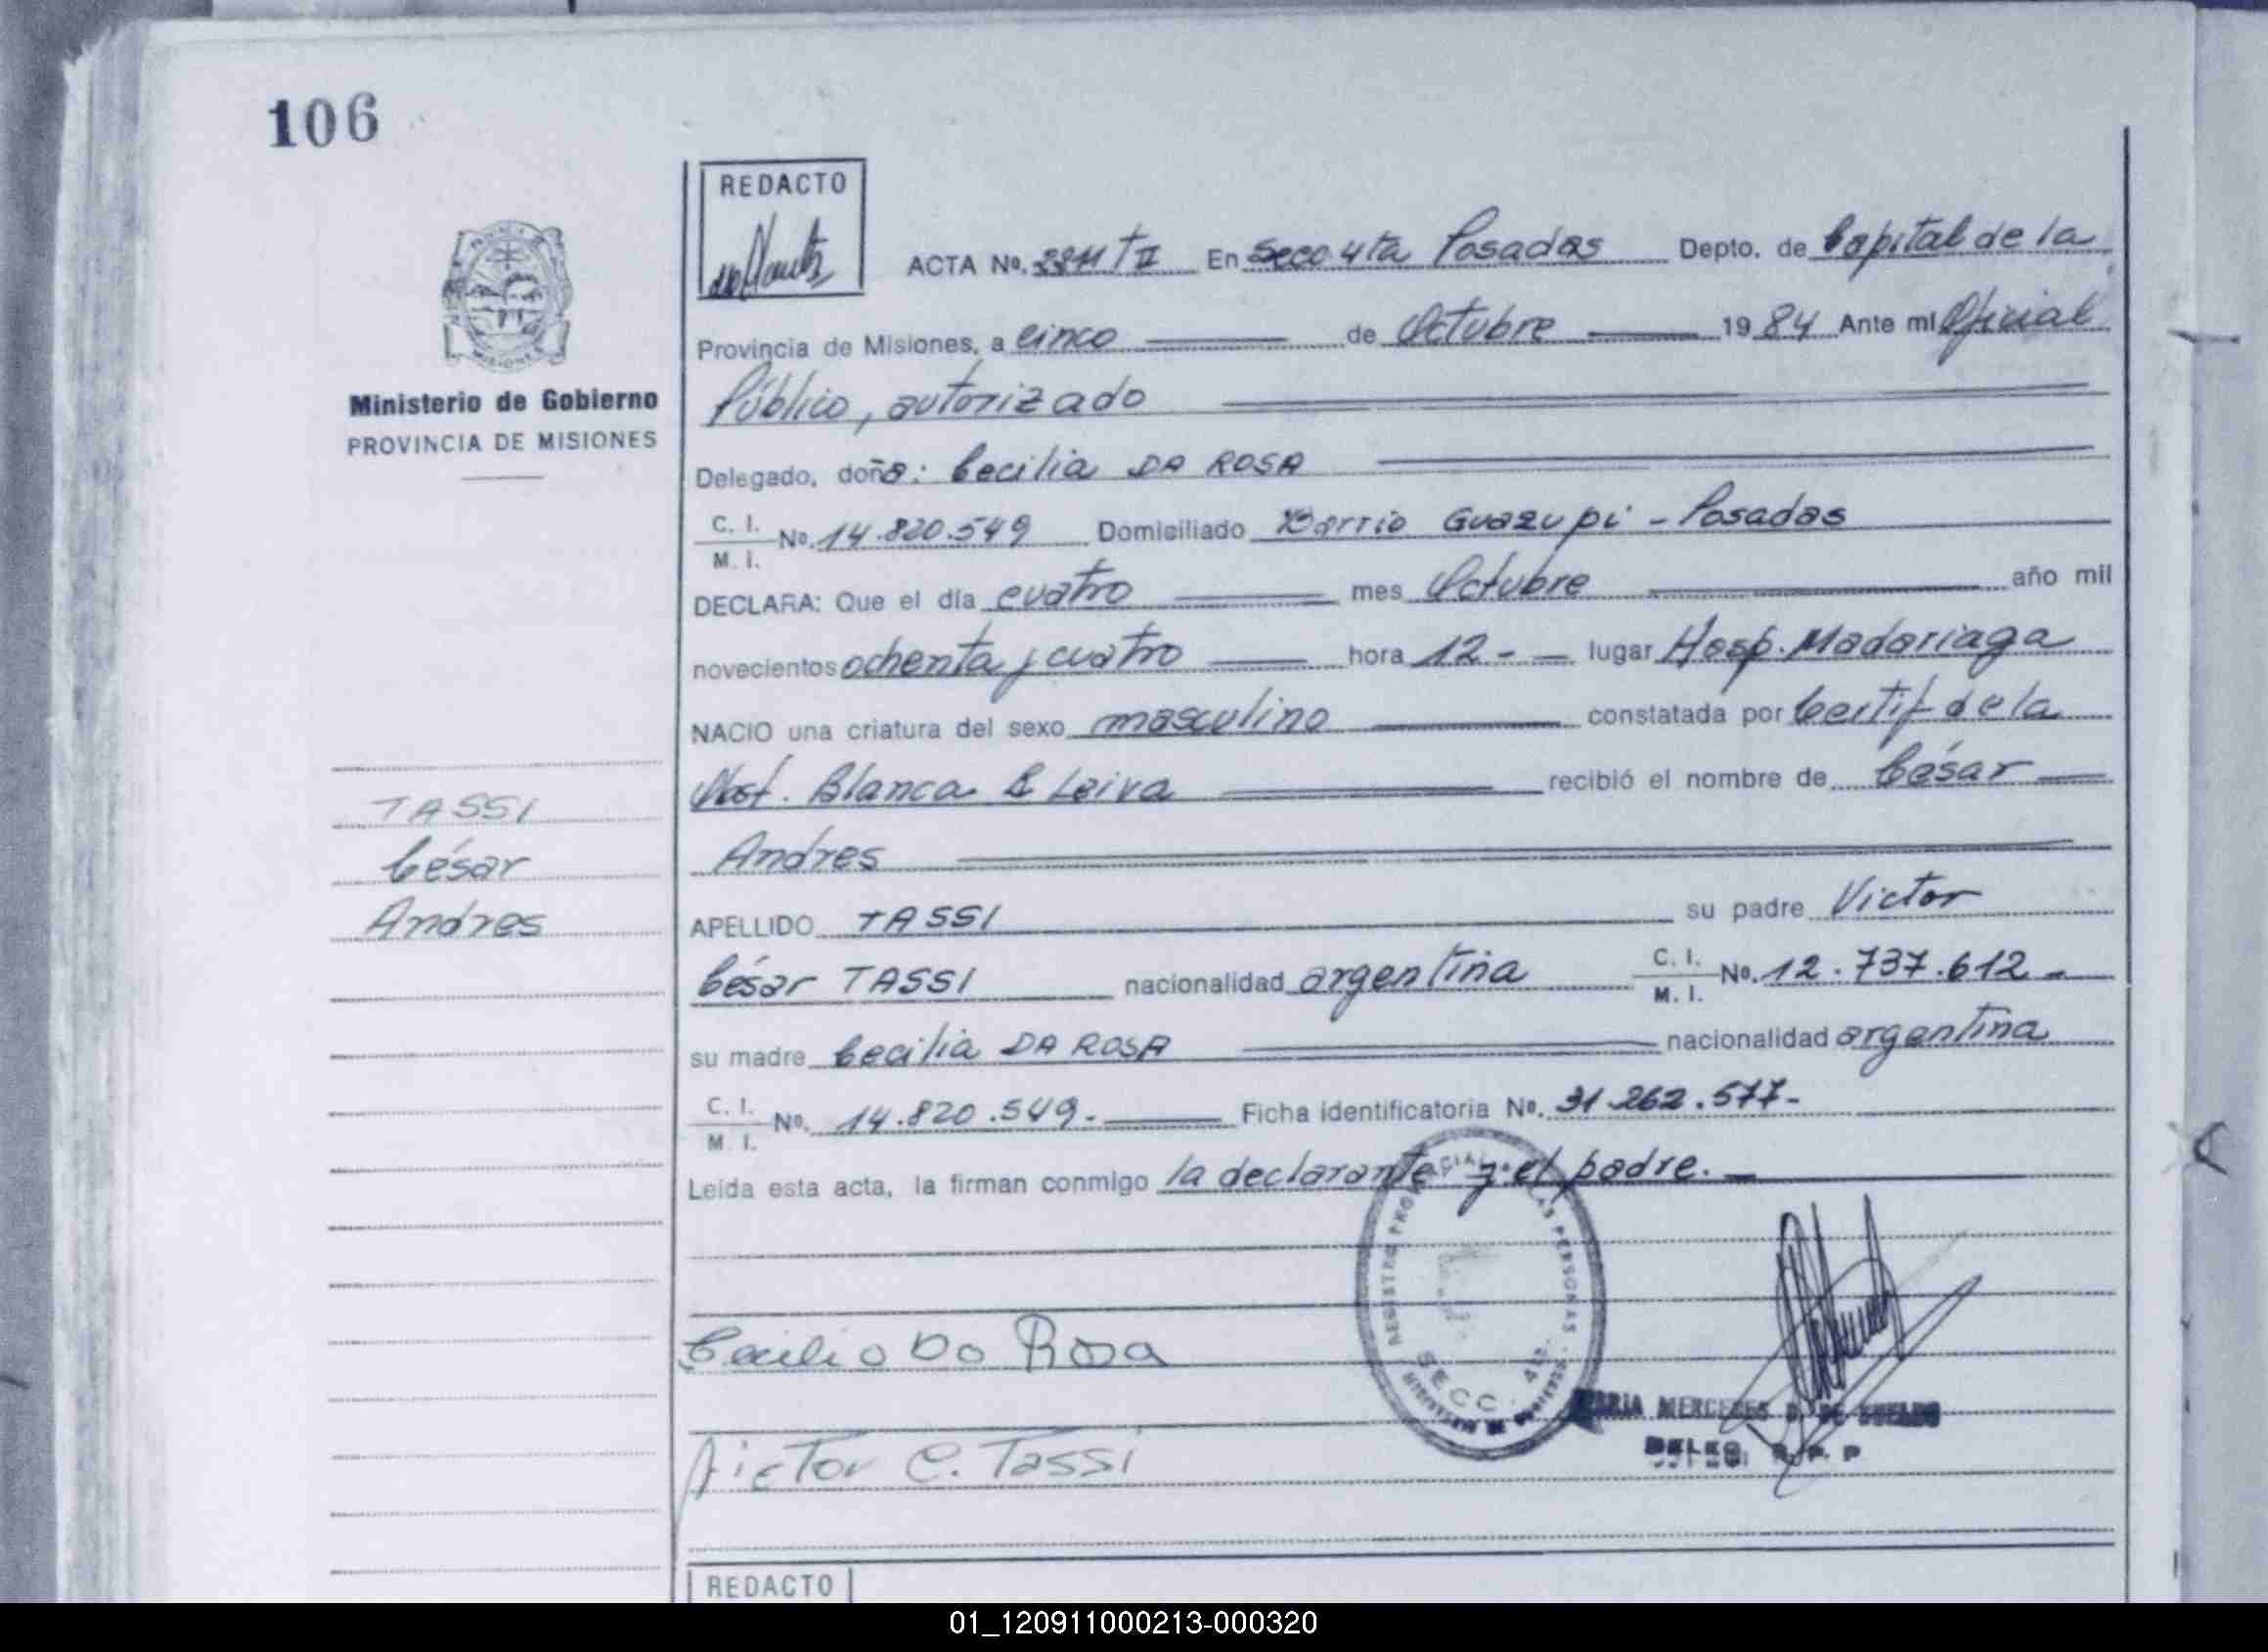 106
REDACTO
ACTA Nº. 3811 T II En Secc 4ta Posadas Depto. de Capital de la
Provincia de Misiones, a cinco de Octubre 1984 Ante mí Oficial
Público, autorizado
Ministerio de Gobierno
PROVINCIA DE MISIONES
Delegado, doña: Cecilia DA ROSA
C. I.
M. I. Nº. 14.820.549 Domiciliado Barrio Guazupi - Posadas
DECLARA: Que el día cuatro mes Octubre año mil
novecientos ochenta y cuatro hora 12 - lugar Hosp. Madariaga
NACIO una criatura del sexo masculino constatada por Certif de la
Obst. Blanca Leiva recibió el nombre de César
Andres
TASSI
César
Andres
APELLIDO TASSI su padre Victor
César TASSI nacionalidad argentina C. I.
M. I. Nº. 12.737.612 -
su madre Cecilia DA ROSA nacionalidad argentina
C. I.
M. I. Nº. 14.820.549 - Ficha identificatoria Nº. 31.262.577 -
Leída esta acta, la firman conmigo la declarante y el padre. -
REGISTRO PROVINCIAL DE LAS PERSONAS
SECC. 4ta.
MINISTERIO DE GOBIERNO
Cecilia Da Rosa
MARIA MERCEDES D. DE
DELEG. R. P. P
Victor C. Tassi
REDACTO
01_120911000213-000320